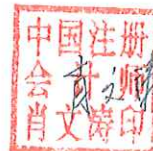 中国注册
会计师
肖文涛印